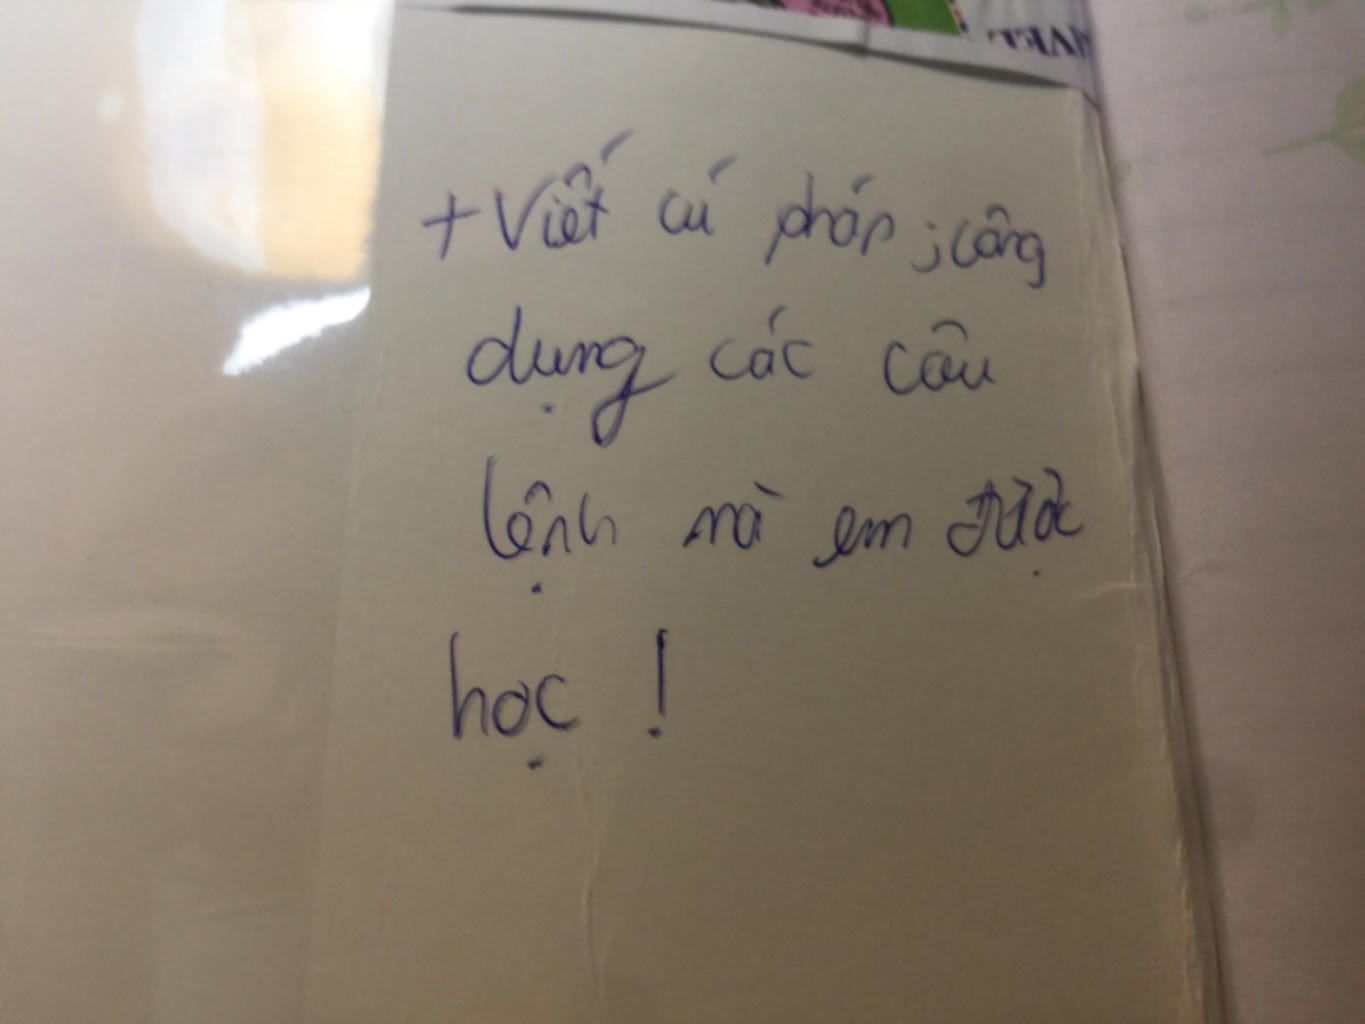 + Viết cú pháp ; công
dụng các câu
lệnh mà em được
học !